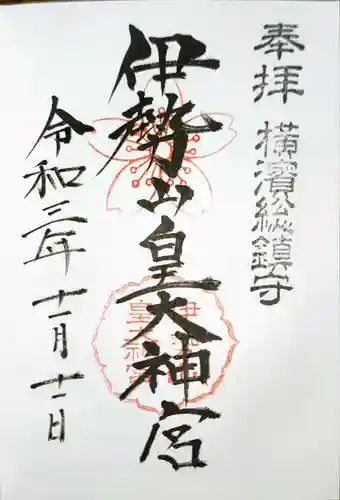 奉拝 横濱総鎮守
伊勢山皇大神宮
令和三年 十一月 十一日